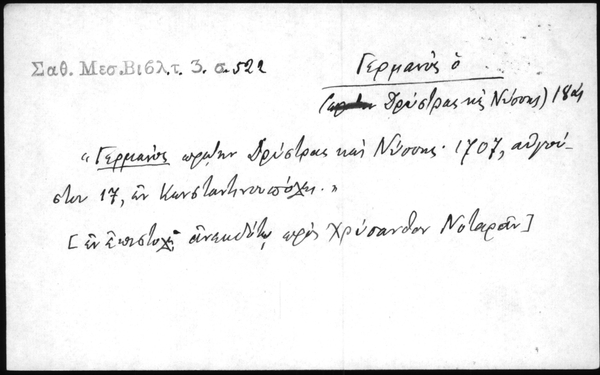 Σαθ. Μεσ.Βιβλ.τ. 3. σ. 522
Γερμανὸς ὁ
Δρύστρας καὶ Νύσσης) 18 αἰ.
« Γερμανὸς πρῴην Δρύστρας καὶ Νύσσης. 1707, αὐγού-
στου 17, ἐν Κωνσταντινουπόλει. »
[ ἐν ἐπιστολῇ ἀνεκδότῳ πρὸς Χρύσανθον Νοταρᾶν ]